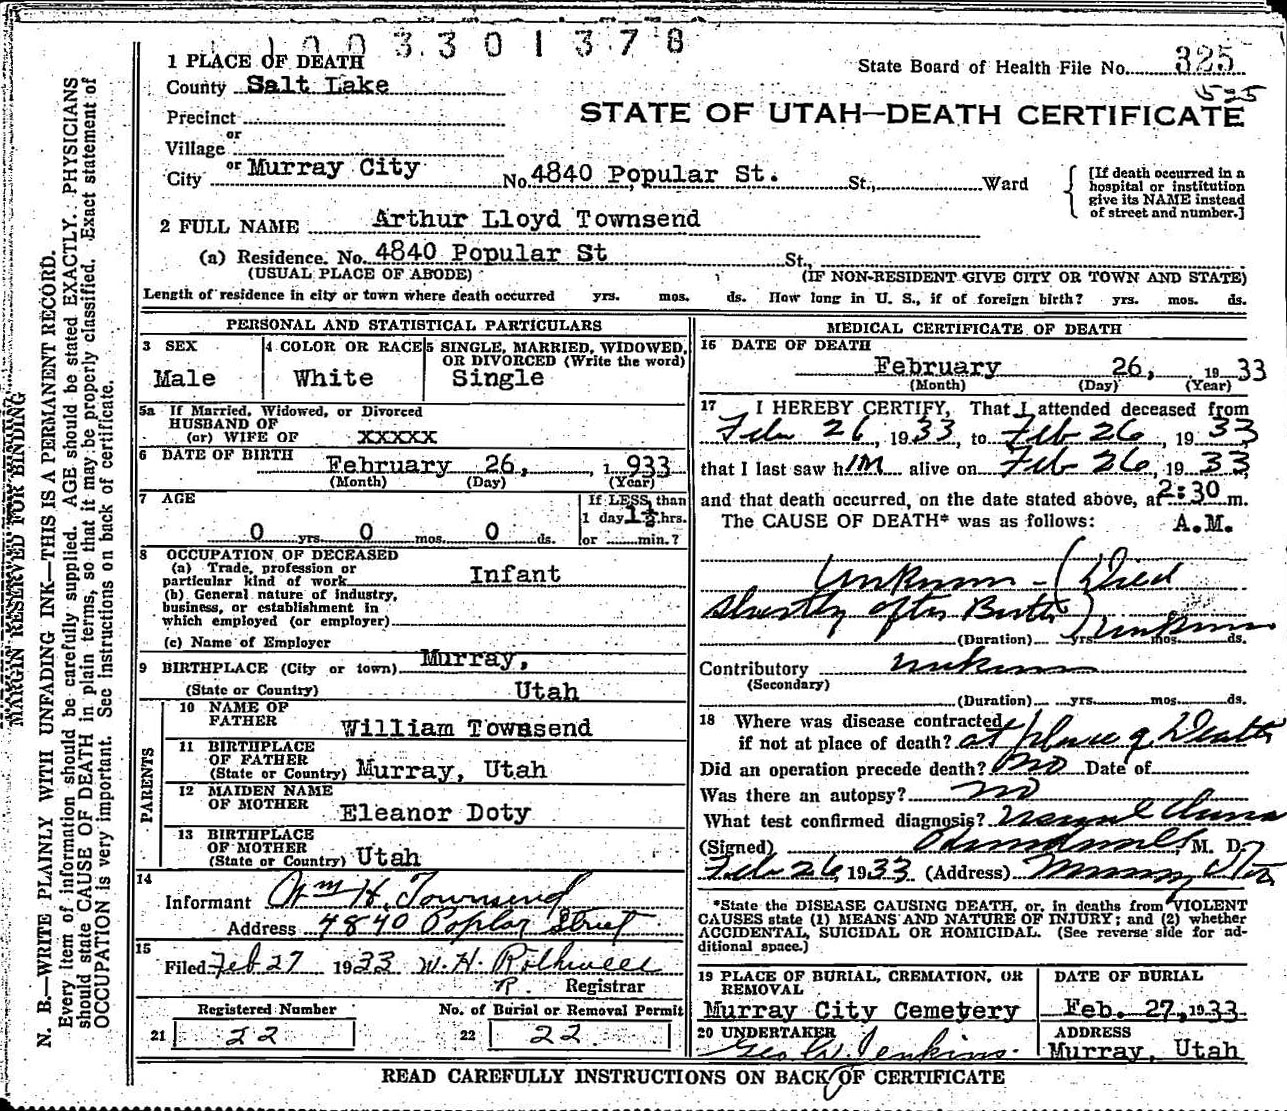 1003301378
1 PLACE OF DEATH
State Board of Health File No. 325
County Salt Lake
525
STATE OF UTAH—DEATH CERTIFICATE
Precinct
or
Village
or Murray City
City No. 4840 Popular St. St., Ward
[If death occurred in a hospital or institution give its NAME instead of street and number.]
2 FULL NAME Arthur Lloyd Townsend
(a) Residence. No. 4840 Popular St St.,
(USUAL PLACE OF ABODE) (IF NON-RESIDENT GIVE CITY OR TOWN AND STATE)
Length of residence in city or town where death occurred yrs. mos. ds. How long in U. S., if of foreign birth? yrs. mos. ds.
PERSONAL AND STATISTICAL PARTICULARS
3 SEX 4 COLOR OR RACE 5 SINGLE, MARRIED, WIDOWED,
OR DIVORCED (Write the word)
Male White Single
5a If Married, Widowed, or Divorced
HUSBAND OF
(or) WIFE OF XXXXX
6 DATE OF BIRTH February 26, 1933
(Month) (Day) (Year)
7 AGE If LESS than
1 day 1½ hrs.
0 yrs. 0 mos. 0 ds. or min.?
8 OCCUPATION OF DECEASED
(a) Trade, profession or
particular kind of work Infant
(b) General nature of industry,
business, or establishment in
which employed (or employer)
(c) Name of Employer
9 BIRTHPLACE (City or town) Murray,
(State or Country) Utah
PARENTS
10 NAME OF
FATHER William Townsend
11 BIRTHPLACE
OF FATHER
(State or Country) Murray, Utah
12 MAIDEN NAME
OF MOTHER Eleanor Doty
13 BIRTHPLACE
OF MOTHER
(State or Country) Utah
14
Informant Wm H. Townsend
Address 4840 Poplar Street
15
Filed Feb 27 1933 W. H. Rothwell
R. Registrar
Registered Number No. of Burial or Removal Permit
21 22 22 22
MEDICAL CERTIFICATE OF DEATH
16 DATE OF DEATH
February 26, 1933
(Month) (Day) (Year)
17 I HEREBY CERTIFY, That I attended deceased from
Feb 26, 1933, to Feb 26, 1933,
that I last saw him alive on Feb 26, 1933
and that death occurred, on the date stated above, at 2:30 m.
The CAUSE OF DEATH* was as follows: A.M.
Unknown - (Died
shortly after Birth)
(Duration) yrs. unknown mos. ds.
Contributory unknown
(Secondary)
(Duration) yrs. mos. ds.
18 Where was disease contracted
if not at place of death? at place of Death
Did an operation precede death? No Date of
Was there an autopsy? no
What test confirmed diagnosis?
(Signed) M. D.
Feb 26, 1933 (Address) Murray Utah
*State the DISEASE CAUSING DEATH, or, in deaths from VIOLENT
CAUSES state (1) MEANS AND NATURE OF INJURY; and (2) whether
ACCIDENTAL, SUICIDAL OR HOMICIDAL. (See reverse side for ad-
ditional space.)
19 PLACE OF BURIAL, CREMATION, OR
REMOVAL
Murray City Cemetery
DATE OF BURIAL
Feb. 27, 1933
20 UNDERTAKER
Geo W. Jenkins.
ADDRESS
Murray, Utah
READ CAREFULLY INSTRUCTIONS ON BACK OF CERTIFICATE
MARGIN RESERVED FOR BINDING
N. B.—WRITE PLAINLY WITH UNFADING INK—THIS IS A PERMANENT RECORD.
Every item of information should be carefully supplied. AGE should be stated EXACTLY. PHYSICIANS
should state CAUSE OF DEATH in plain terms, so that it may be properly classified. Exact statement of
OCCUPATION is very important. See instructions on back of certificate.